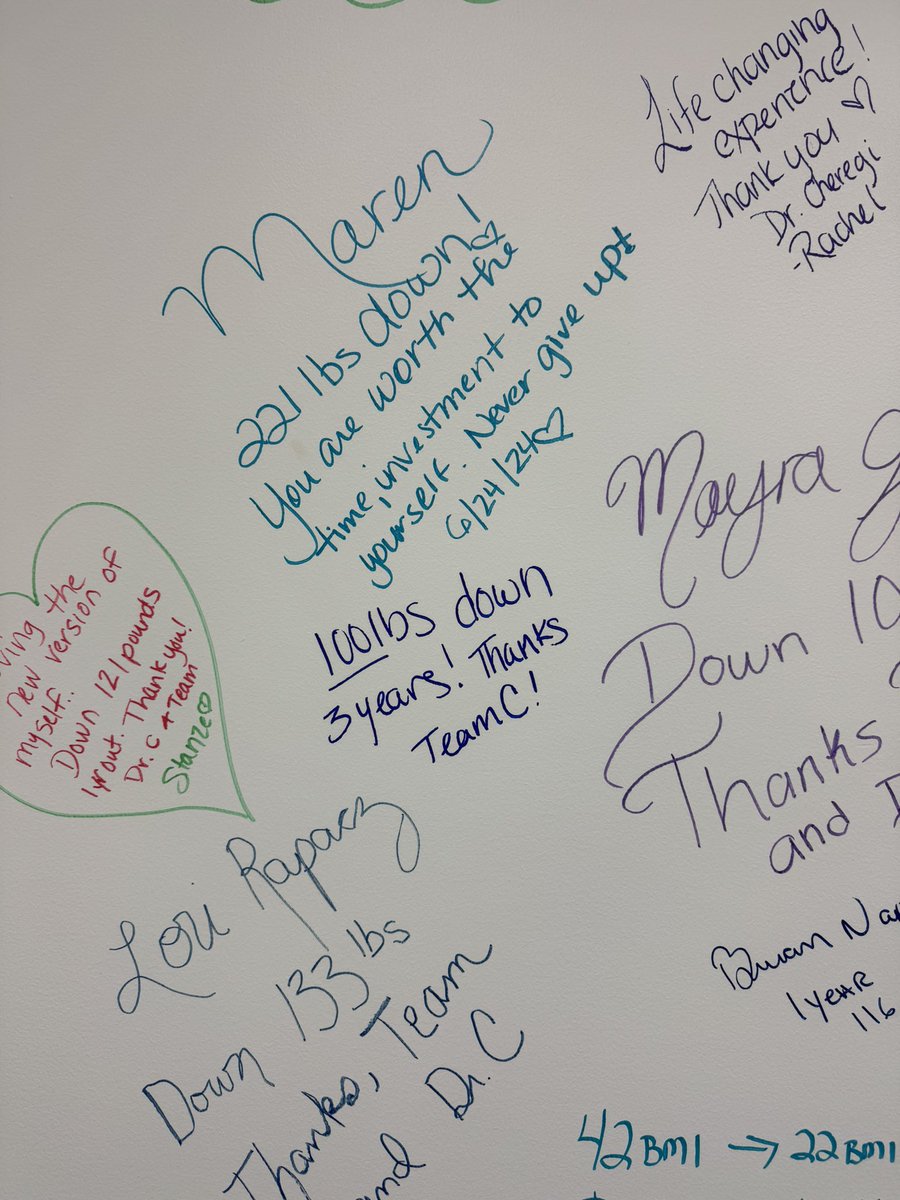 Life changing
experience!
Thank you
Dr. Cheregi
-Rachel
Maren
221 lbs down!
You are worth the
time, investment to
yourself. Never give up!
6/24/24
new version of
myself.
Down 121 pounds
1yr out. Thank you!
Dr. C + Team
Stanze
100lbs down
3 years! Thanks
Team C!
Mayra
Down 10
Thanks
and
Lori Rapacz
Down 133 lbs
Thanks, Team
and Dr. C
1 YEAR
116
42 BMI → 22 BMI